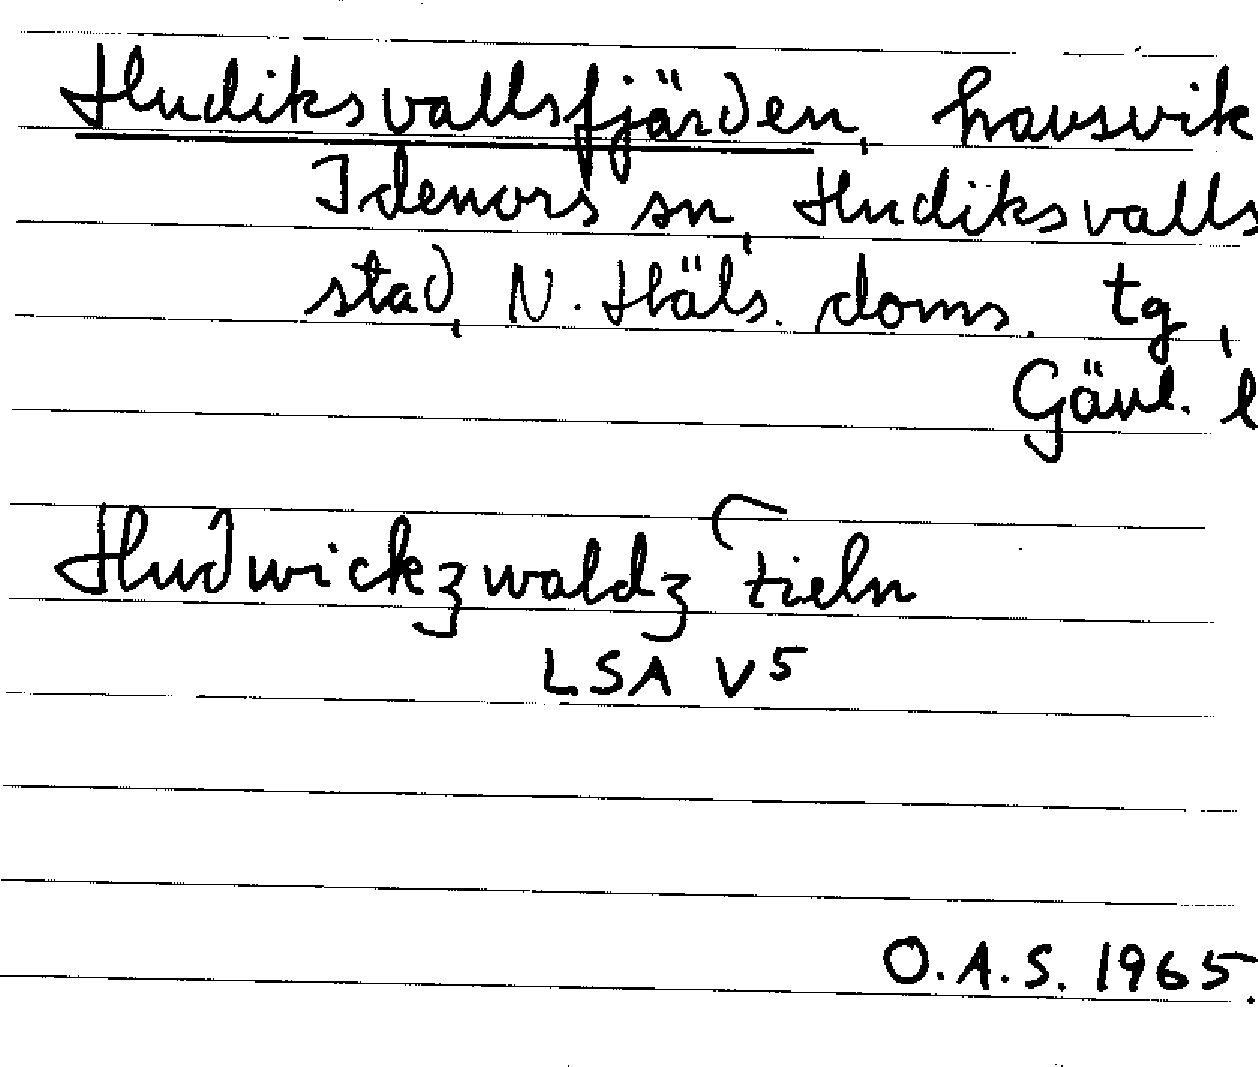 Hudiksvallsfjärden, havsvik
Idenors sn, Hudiksvalls
stad, N. Häls. doms. tg,
Gävl. l
Hudwickzwaldz Fieln
LSA V5
O.A.S. 1965.